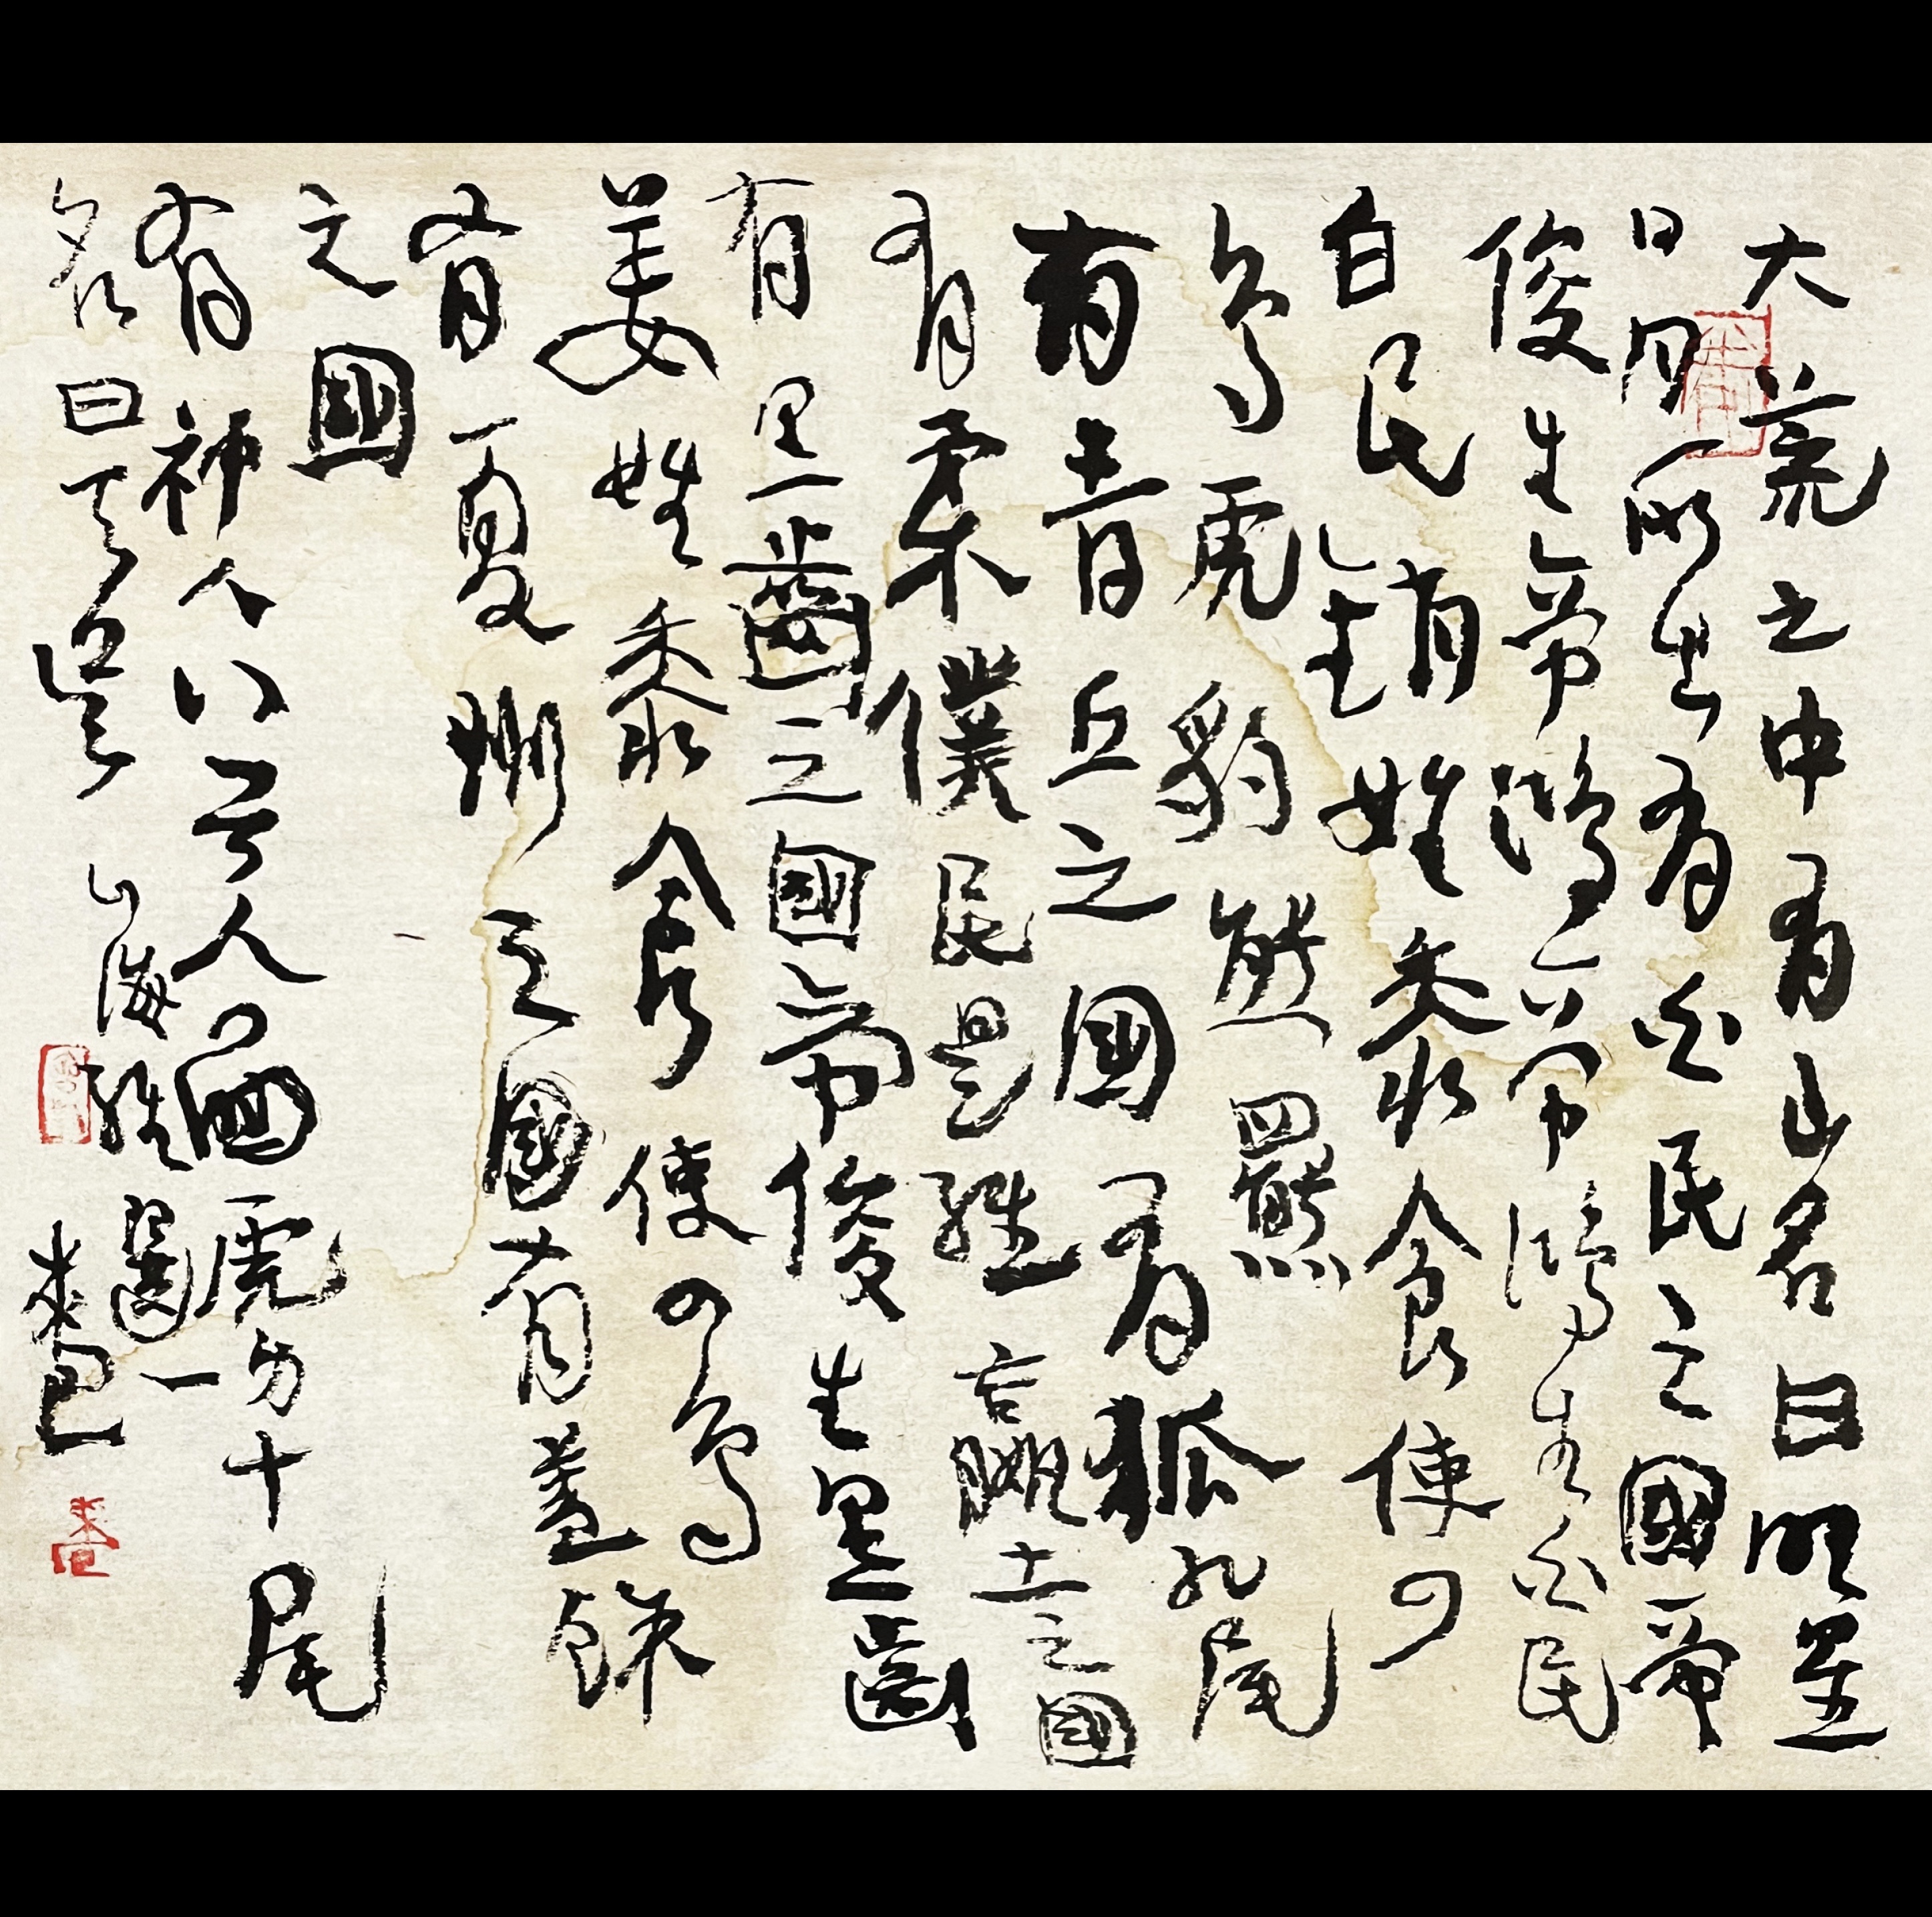 大荒之中有山名曰明星
日月所出有白民之國帝
俊生帝鴻帝鴻生白民
白民銷姓黍食使四
鳥虎豹熊羆
有青丘之國有狐九尾
有柔僕民是維言嬴土之國
有黑齒之國帝俊生黑齒
姜姓黍食使四鳥
有夏州之國有蓋餘
之國
有神人八首人面虎身十尾
名曰天吳 山海經選一